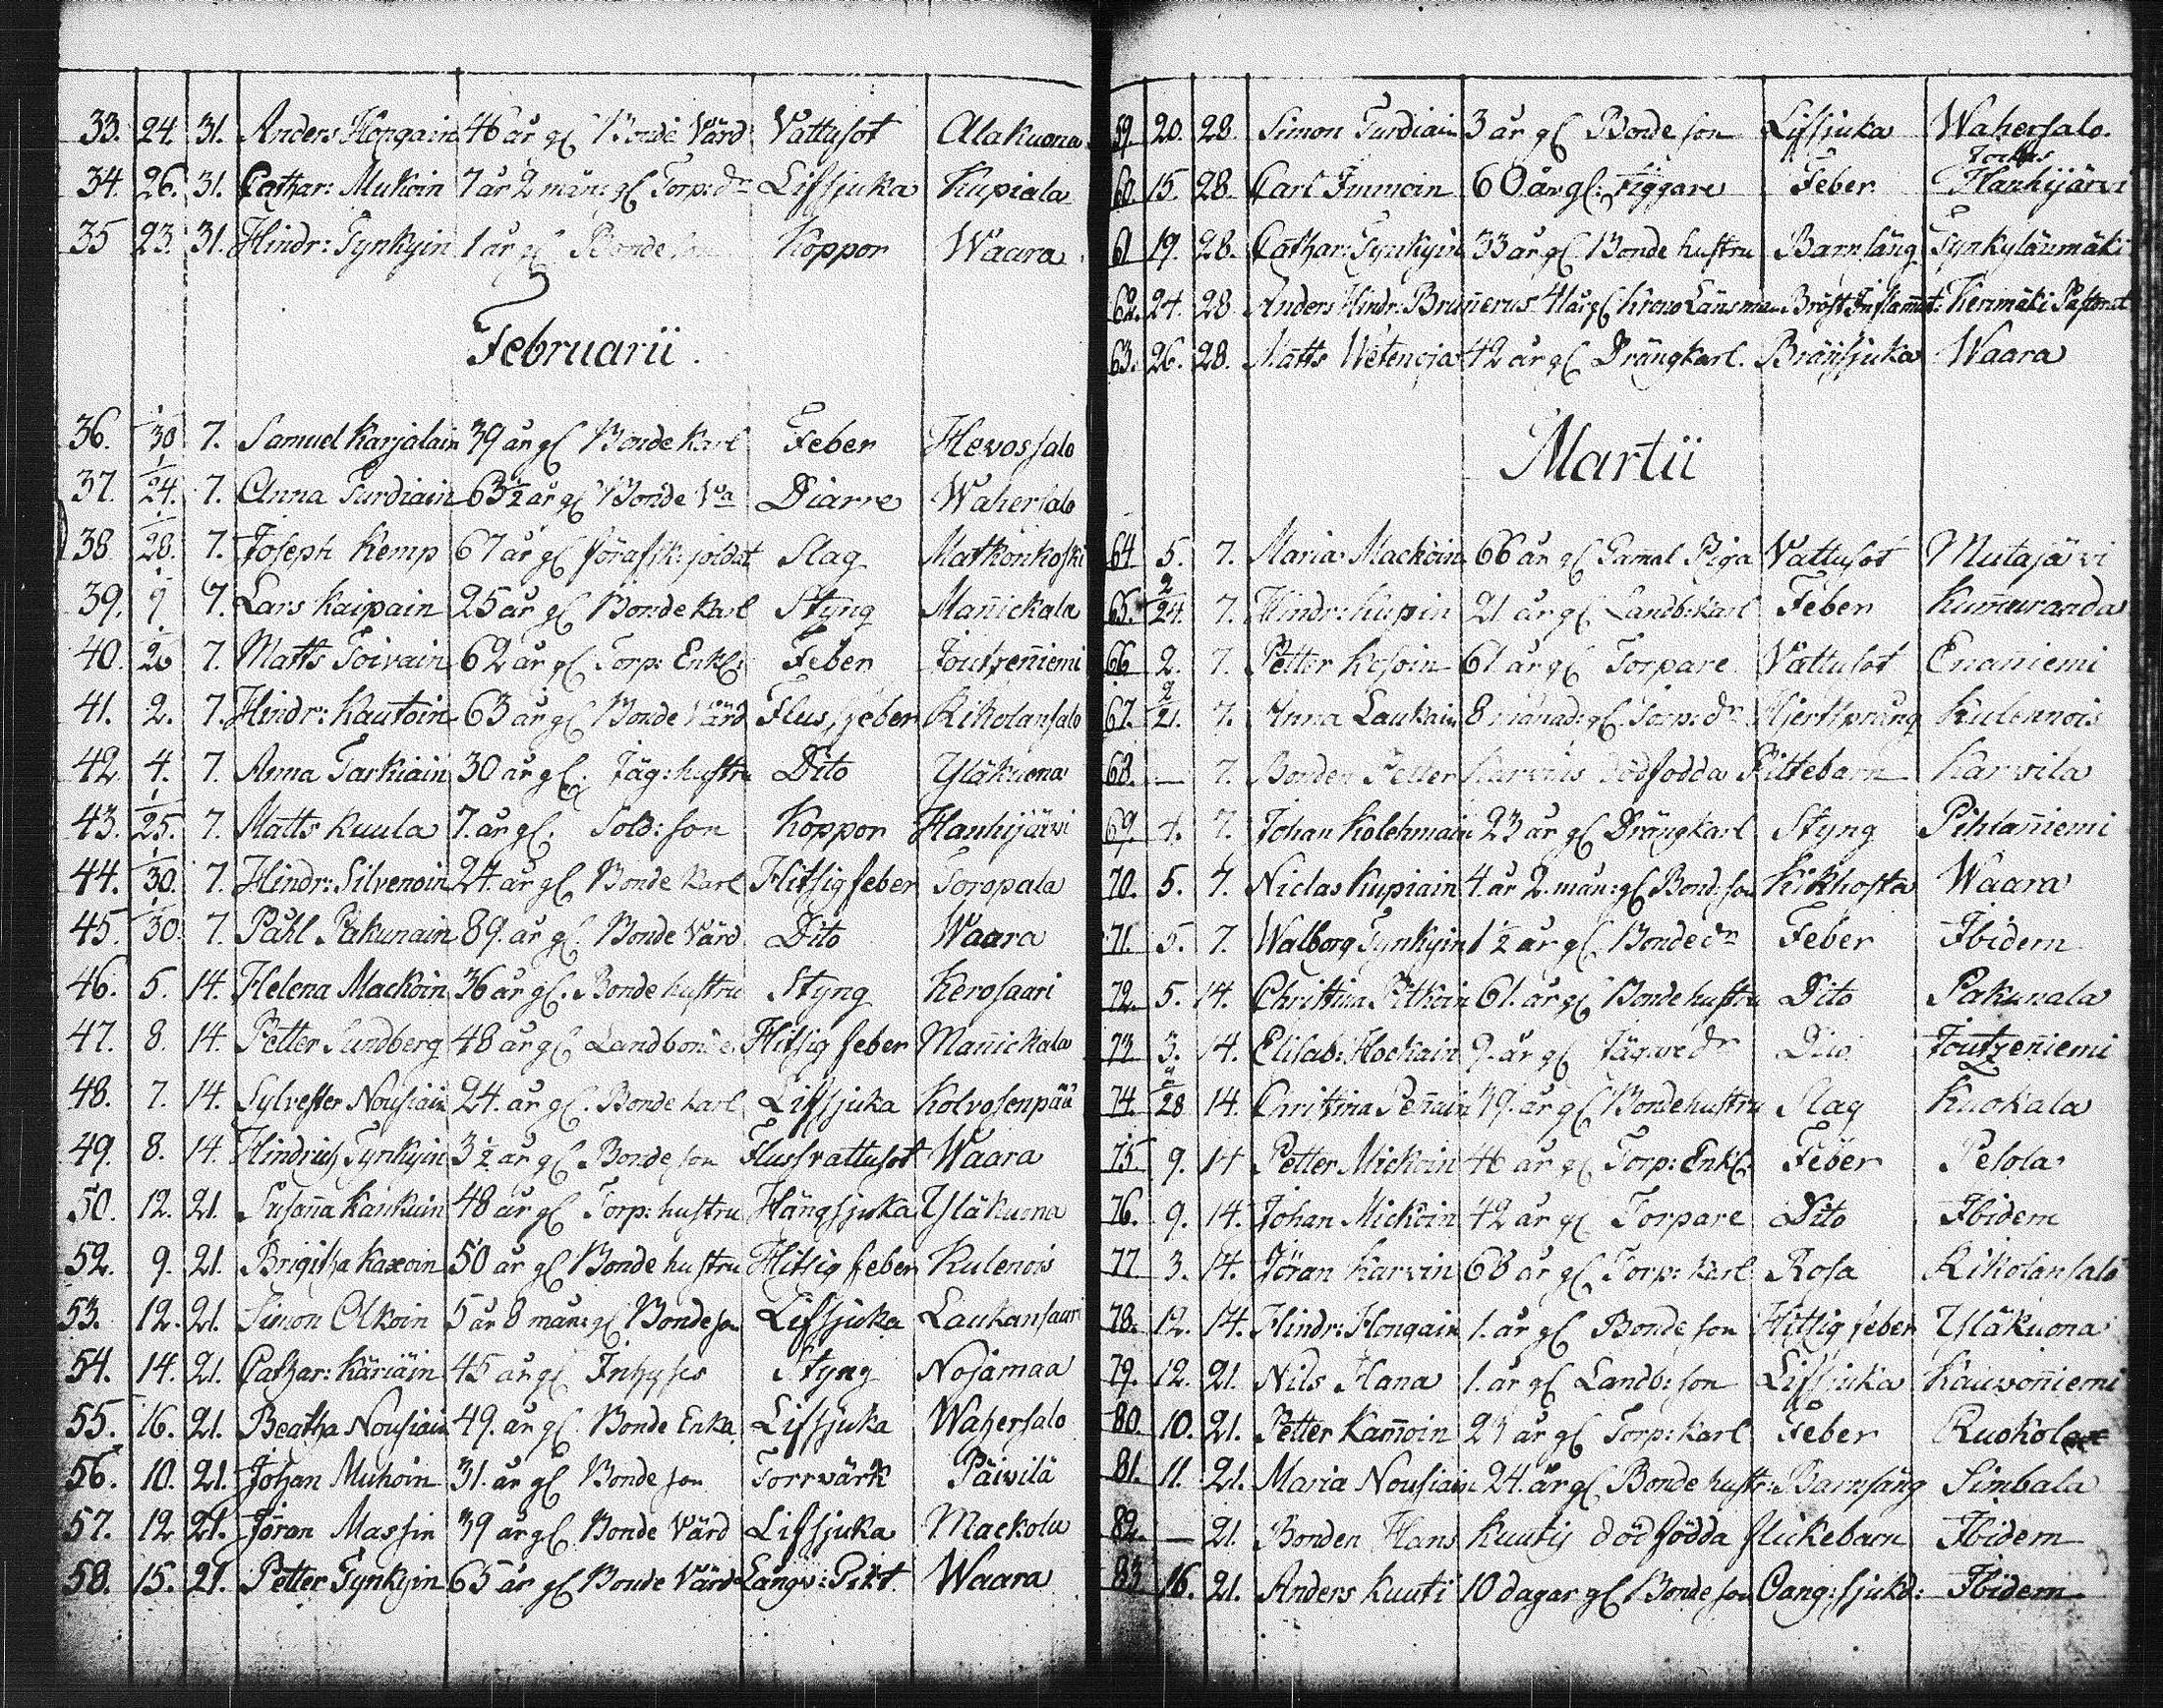 33. 24. 31. Anders Hongain 46 år gl Bonde Värd Vattusot Alakuona
34. 26. 31. Cathar: Mukoin 7 år 2 mån: gl Torp: dr Lifsjuka Kupiala
35 23. 31. Hindr: Tynkyin 1 år gl Bonde son Koppor Waara
Februarii.
36. 1/30 7. Samuel Karjalain 39 år gl Bonde Karl Feber Hevossalo
37. 1/24. 7. Anna Turdiain 63½ år gl Bonde Va Diarre Wahersalo
38 1/28. 7. Joseph Kemp 67 år gl förafsk: soldat Slag Matkonkoski
39. 7. Lars Kaipain 25 år gl Bonde Karl Styng Mannickala
40. 26 7. Matts Toivain 62 år gl Torp: Enkl: Feber Joutzenniemi
41. 2. 7. Hindr: Kautoin 63 år gl Bonde Värd Flussfeber Rikolansalo
42 4. 7. Anna Tarkiain 30 år gl. Jäg: hustru Dito Yläkuona
43. 1/25. 7. Matts Kuula 7. år gl. Sold: son Koppor Hanhijärvi
44. 1/30. 7. Hindr: Silvenoin 24. år gl Bonde Karl Hitsig feber Toropala
45. 1/30. 7. Påhl Pakunain 89. år gl. Bonde Värd Dito Waara
46. 5. 14. Helena Mackoin 36 år gl. Bonde hustru Styng Kerosaari
47. 8. 14. Petter Sundberg 48 år gl Landbonde Hitsig feber Mannickala
48. 7. 14. Sylvester Nousiain 24. år gl. Bonde Karl Lifsjuka Kolvosenpää
49. 8. 14. Hindrich Tynkyin 3½ år gl Bonde son Flussvattusot Waara
50. 12. 21. Susanna Kankuin 48 år gl Torp: hustru Hängsjuka Yläkuona
52. 9. 21. Brigitha Kaxoin 50 år gl Bonde hustru Hitsig feber Kulenois
53. 12. 21. Simon Olkoin 5 år 8 mån: gl Bonde son Lifsjuka Laukansaari
54. 14. 21. Cathar: Käriäin 45 år gl Inhyses Styng Nojamaa
55. 16. 21. Beatha Nousiain 49. år gl Bonde Enka Lifsjuka Wahersalo
56. 10. 21. Johan Muhoin 31. år gl Bonde son Torrvärk Päivilä
57. 12 21. Jöran Massin 39 år gl Bonde Värd Lifsjuka Mackola
58. 15. 21. Petter Tynkyin 65 år gl Bonde Värd Långv: Pikt Waara
59. 20. 28. Simon Turdiain 3 år gl Bonde son Lifsjuka Wahersalo.
60. 15. 28. Carl Immoin 60 år gl: Tiggare Feber Hanhijärvi
61 19. 28. Cathar: Tynkyin 33 år gl Bonde hustru Barnsäng Tynkylänmäki
62. 24. 28 Anders Hindr: Brunnerus 41 år gl Krono Länsman Bröst Inflammat: Kerimäki Pastorat
63. 26. 28. Matts Wetenoja 42 år gl Drängkarl. Brännsjuka Waara
Martii
64 5. 7. Maria Mackoin 66 år gl Gamal Piga Vattusot Mutajärvi
65. 2/24. 7. Hindr: Kupin 21. år gl Landb: Karl Feber Kummuranda
66 2. 7. Petter Kosoin 61 år gl Torpare Vattusot Enanniemi
67. 2/21. 7. Anna Laukain 8 månad: gl Torp: dr Hjertsprång Kulennois
68. — 7. Bonden Petter Karvins dödfödda Piltebarn Karvila
69. 4. 7. Johan Kolehmain 23 år gl Drängkarl Styng Pihlanniemi
70. 5. 7. Niclas Kupiain 4. år 2. mån: gl Bond: son Kikhosta Waara
71. 5. 7. Walborg Tynkyin 1½ år gl Bonde dr Feber Ibidem
72. 5. 14. Christina Pitkoin 61. år gl Bonde hustru Dito Pakunala
73 3. 14. Elisab: Hockain 9. år gl Jägare dr Dito Joutzenniemi
74. 2/28 14. Christina Pennain 49. år gl Bonde hustru Slag Kuokala
75 9. 14 Petter Mickoin 46 år gl Torp: Enkl. Feber Pesola
76. 9. 14. Johan Mickoin 42 år gl Torpare Dito Ibidem
77 3. 14. Jöran Karvin 68 år gl Torp: Karl Rosa Rikolansalo
78. 12. 14. Hindr: Hongain 1. år gl Bonde son Hittig feber Yläkuona
79. 12. 21. Nils Hana 1. år gl Landb: son Lifsjuka Kauvonniemi
80. 10. 21. Petter Kammoin 23 år gl Torp: Karl Feber Ruokola
81. 11. 21. Maria Nousiain 24. år gl Bonde hustr: Barnsäng Simbala
82. — 21. Bonden Hans Kuutis dödfödda flickebarn Ibidem
83 16. 21. Anders Kuuti 10 dagar gl Bonde son Oang: sjukd: Ibidem